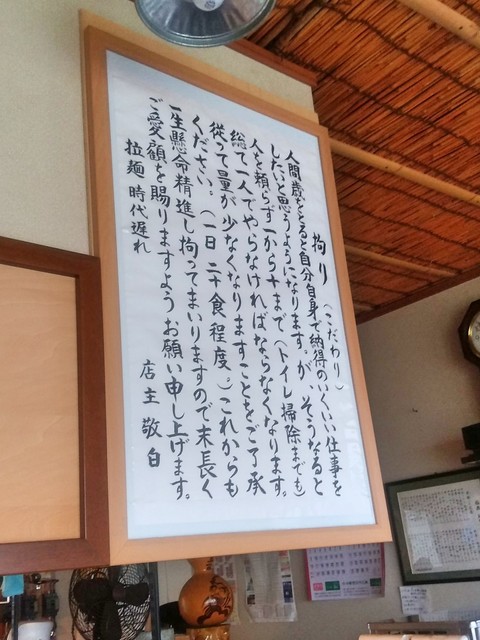 拘り（こだわり）
人間歳をとると自分自身で納得のいくいい仕事を
したいと思うようになります。が、そうなると
人を頼らず一から十まで（トイレ掃除までも）
総て一人でやらなければならなくなります。
従って量が少なくなりますことをご了承
ください。（一日 二十食程度。）これからも
一生懸命精進し拘ってまいりますので末長く
ご愛顧を賜りますようお願い申し上げます。
拉麺 時代遅れ
店主 敬白